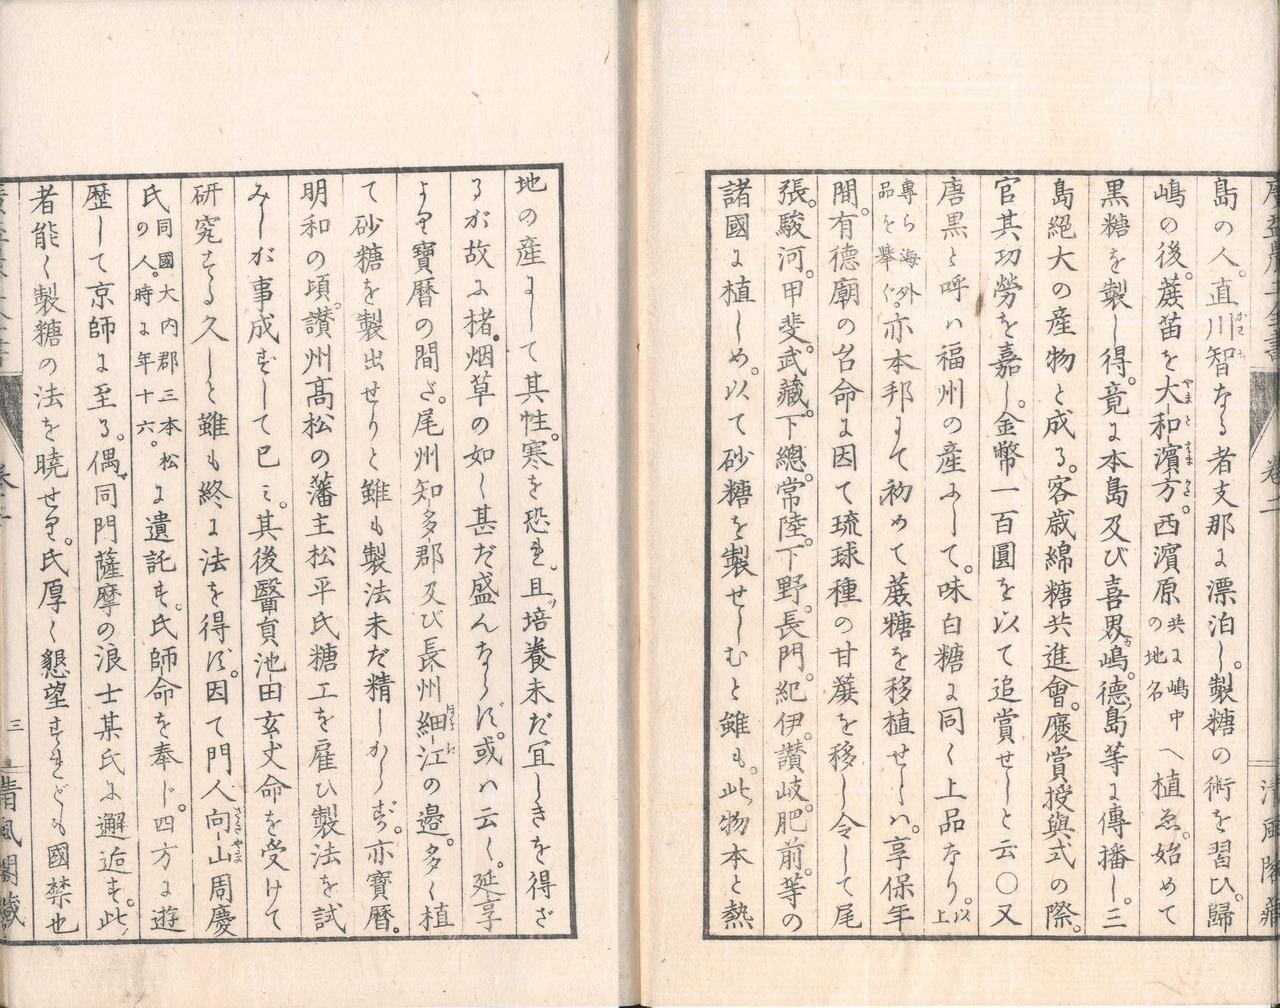 島の人。直川智なる者支那に漂泊し。製糖の術を習ひ。歸
嶋の後。蔗笛を大和濱方。西濱原共に嶋中の地名へ植ゑ。始めて
黒糖を製し得。竟に本島及び喜界嶋。德島等に傳播し。三
島絕大の産物と成る。客歳綿糖共進會。褒賞授與式の際。
官其功勞を嘉し。金幣一百圓を以て追賞せしと云〇又
唐黒と呼ハ福州の産にして。味白糖に同く上品なり。以上
專ら海外品を擧ぐ。亦本邦にて初めて蔗糖を移植せしハ。享保年
間。有德廟の台命に因て琉球種の甘蔗を移し令して尾
張。駿河。甲斐。武藏。下總。常陸。下野。長門。紀伊。讃岐。肥前。等の
諸國に植しめ。以て砂糖を製せしむと雖も。此物本と熱
地の産にして其性。寒を恐れ。且ッ培養未だ宜しきを得ざ
るが故に楮。烟草の如し甚だ盛んならず。或ハ云く。延享
より寶暦の間ざ。尾州知多郡及び長州細江の邉。多く植
て砂糖を製出せりと雖も製法未だ精しからず。亦寶暦。
明和の頃。讃州髙松の藩主松平氏糖工を雇ひ製法を試
みしが事成ずして已ミ。其後醫員池田玄丈命を受けて
研究する久しと雖も終に法を得ず。因て門人向山周慶
氏同國大内郡三本松の人。時に年十六。に遺託す。氏師命を奉じ。四方に遊
歴して京師に至る。偶マ同門薩摩の浪士某氏に邂逅す。此
者能く製糖の法を曉せり。氏厚く懇望すれども國禁也
卷二
三
清風閣藏